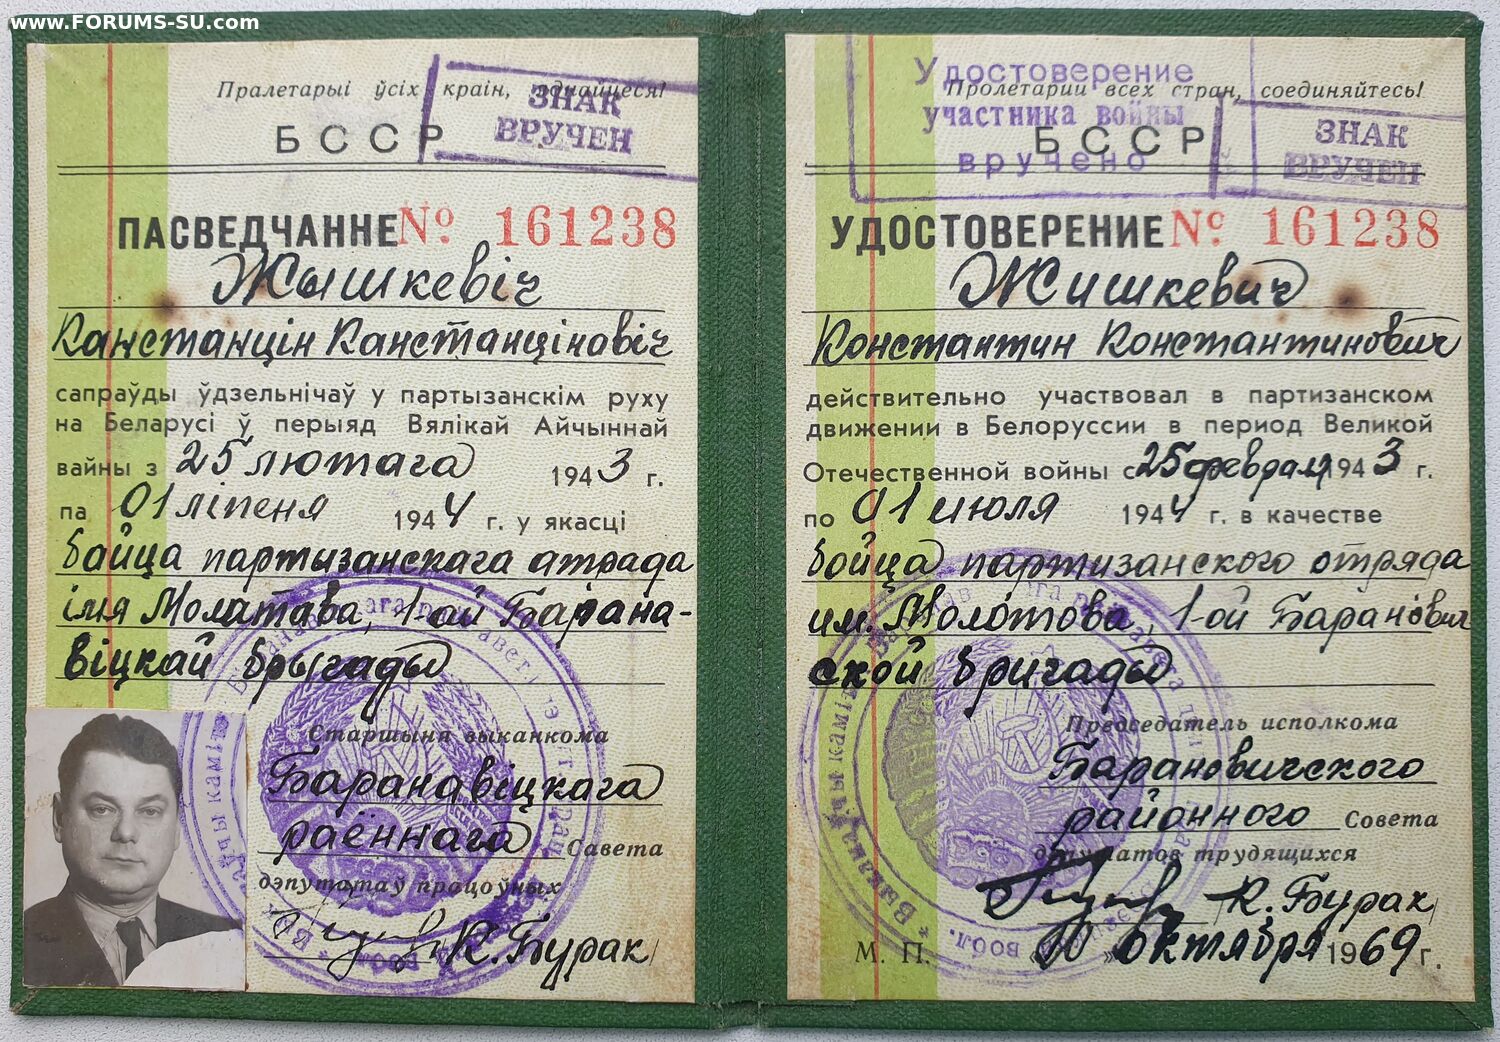 www.FORUMS-SU.com
Пралетарыі ўсіх краін, яднайцеся!
ЗНАК
ВРУЧЕН
БССР
ПАСВЕДЧАННЕ № 161238
Жышкевіч
Канстанцін Канстанцінавіч
сапраўды ўдзельнічаў у партызанскім руху
на Беларусі ў перыяд Вялікай Айчыннай
вайны з 25 лютага 1943 г.
па 01 ліпеня 1944 г. у якасці
байца партызанскага атрада
імя Молатава, 1-ой Барана-
віцкай брыгады
Старшыня выканкома
Баранавіцкага
раённага Савета
дэпутатаў працоўных
К. Бурак
Удостоверение
участника войны
вручено
Пролетарии всех стран, соединяйтесь!
ЗНАК
ВРУЧЕН
БССР
УДОСТОВЕРЕНИЕ № 161238
Жишкевич
Константин Константинович
действительно участвовал в партизанском
движении в Белоруссии в период Великой
Отечественной войны с 25 февраля 1943 г.
по 01 июля 1944 г. в качестве
бойца партизанского отряда
им. Молотова, 1-ой Баранович
ской бригады
Председатель исполкома
Барановичского
районного Совета
депутатов трудящихся
К. Бурак
М. П. «10» октября 1969 г.